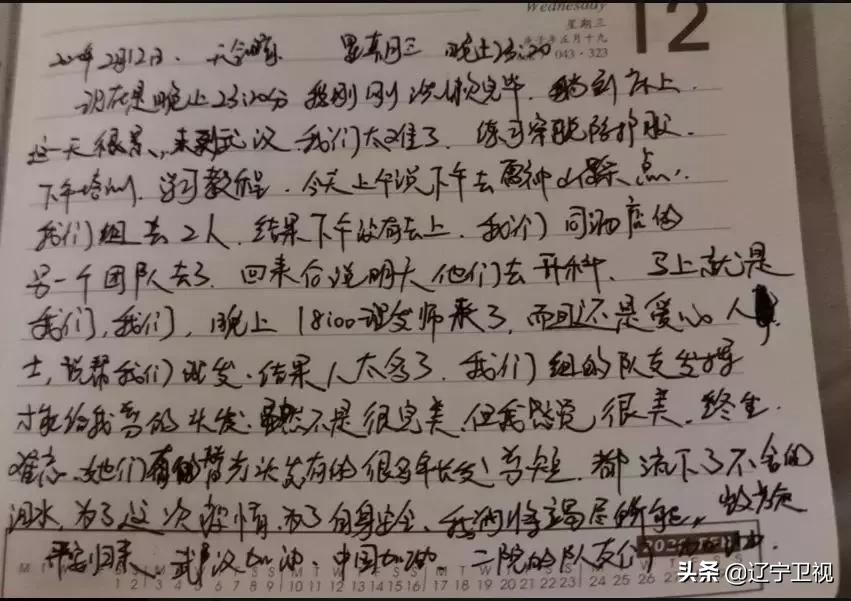 Wednesday
星期三
庚子年正月十九
043·323
12
2020年2月12日. 天气晴 星期三 晚上23:20
现在是晚上23:20分 我刚刚洗漱完毕. 躺到床上.
这一天很累, 来到武汉 我们太难了. 练习穿脱防护服.
下午培训. 学习教程. 今天上午说下午去雷神山踩点.
我们组去2人. 结果下午没有去上. 我们同酒店的
另一个团队去了. 回来后说明天他们去开科. 马上就是
我们, 我们, 晚上18:00理发师来了, 而且还是爱心人
士, 说帮我们理发. 结果人太多了. 我们组的队友发挥
才能给我剪的头发. 虽然不是很完美. 但我感觉很美. 终生
难忘. 她们有的 头发有的很多年长发剪短. 都流下了不舍的
泪水, 为了这次疫情. 为了自身安全. 我们将竭尽所能.
平安归来. 武汉加油. 中国加油. 二院的队友们
M T W T F S S M T W T F S S M T W T F S S
1 2 3 4 5 6 7 8 9 10 11 12 13 14 15 16 17 18 19 20 21 22 23 24 25 26
头条 @辽宁卫视